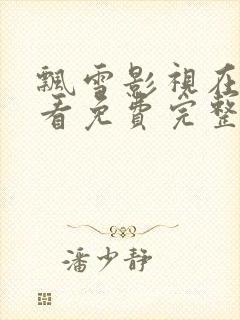 飄雪影視在
看免費完整
潘少静